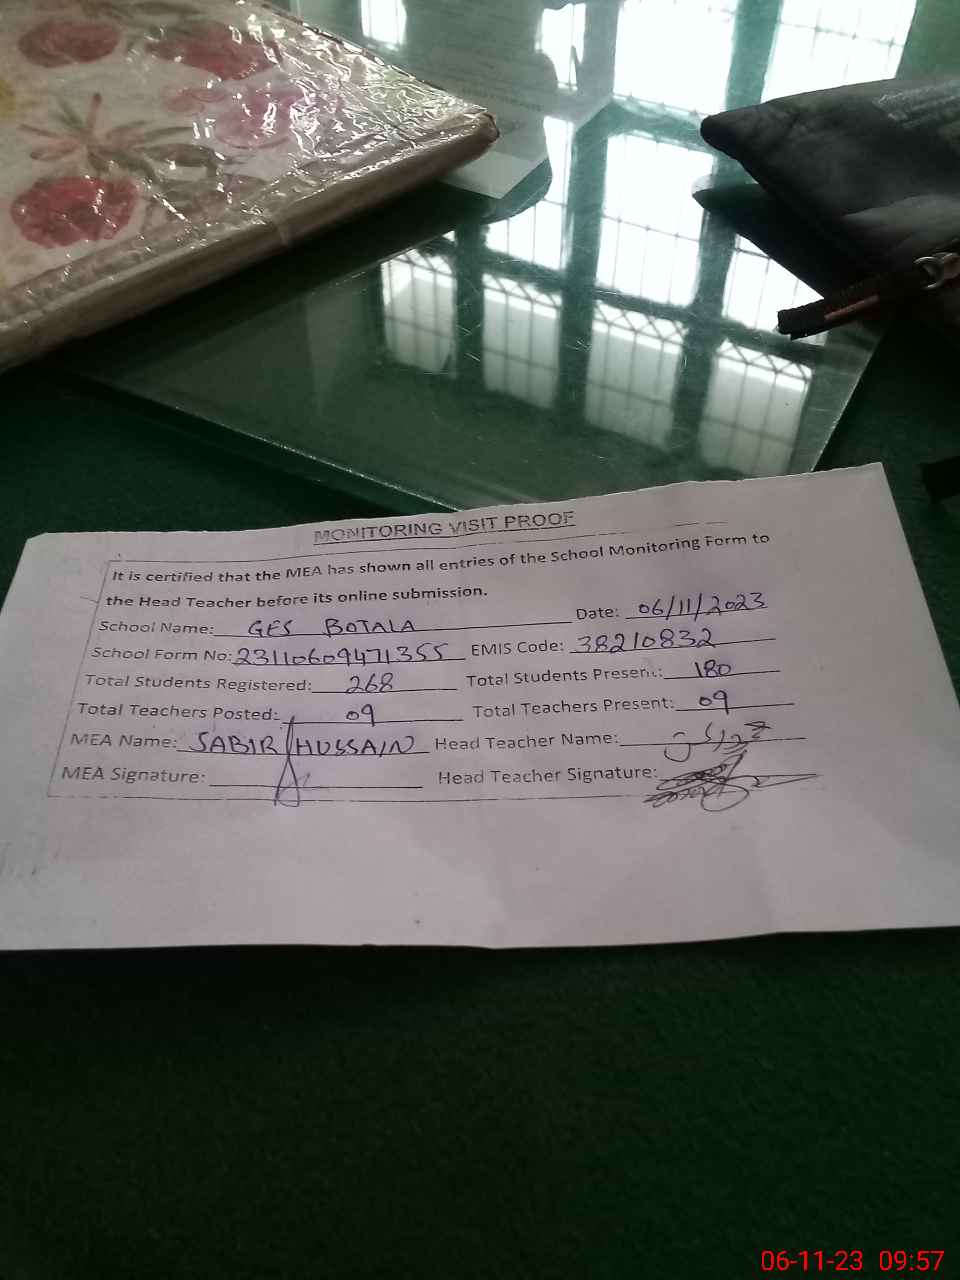 MONITORING VISIT PROOF
It is certified that the MEA has shown all entries of the School Monitoring Form to
the Head Teacher before its online submission.
School Name: GES BOTALA Date: 06/11/2023
School Form No: 23110609471355 EMIS Code: 38210832
Total Students Registered: 268 Total Students Present: 180
Total Teachers Posted: 09 Total Teachers Present: 09
MEA Name: SABIR HUSSAIN Head Teacher Name:
MEA Signature: Head Teacher Signature:
06-11-23 09:57